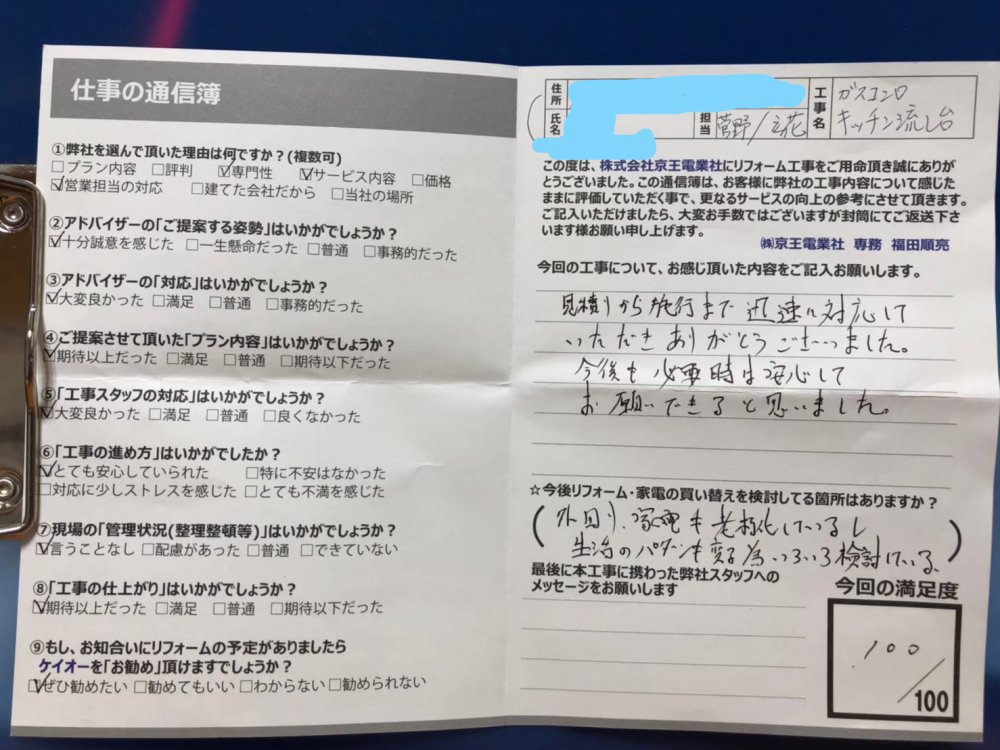 仕事の通信簿
①弊社を選んで頂いた理由は何ですか?(複数可)
□プラン内容 □評判 ☑専門性 ☑サービス内容 □価格
☑営業担当の対応 □建てた会社だから □当社の場所
②アドバイザーの「ご提案する姿勢」はいかがでしょうか?
☑十分誠意を感じた □一生懸命だった □普通 □事務的だった
③アドバイザーの「対応」はいかがでしょうか?
☑大変良かった □満足 □普通 □事務的だった
④ご提案させて頂いた「プラン内容」はいかがでしょうか?
☑期待以上だった □満足 □普通 □期待以下だった
⑤「工事スタッフの対応」はいかがでしょうか?
☑大変良かった □満足 □普通 □良くなかった
⑥「工事の進め方」はいかがでしたか?
☑とても安心していられた □特に不安はなかった
□対応に少しストレスを感じた □とても不満を感じた
⑦現場の「管理状況(整理整頓等)」はいかがでしょうか?
☑言うことなし □配慮があった □普通 □できていない
⑧「工事の仕上がり」はいかがでしょうか?
☑期待以上だった □満足 □普通 □期待以下だった
⑨もし、お知合いにリフォームの予定がありましたら
ケイオーを「お勧め」頂けますでしょうか?
☑ぜひ勧めたい □勧めてもいい □わからない □勧められない
住所
氏名
担当 菅野/立花
工事名 ガスコンロ
キッチン流し台
この度は、株式会社京王電業社にリフォーム工事をご用命頂き誠にありが
とうございました。この通信簿は、お客様に弊社の工事内容について感じた
ままに評価していただく事で、更なるサービスの向上の参考にさせて頂きます。
ご記入いただけましたら、大変お手数ではございますが封筒にてご返送下さ
います様お願い申し上げます。
㈱京王電業社 専務 福田順亮
今回の工事について、お感じ頂いた内容をご記入お願いします。
見積りから施行まで迅速に対応して
いただきありがとうございました。
今後も必要時は安心して
お願いできると思いました。
☆今後リフォーム・家電の買い替えを検討してる箇所はありますか?
(外回り、家電も老朽化しているし
生活のパターンも変る為いろいろ検討している。)
最後に本工事に携わった弊社スタッフへの
メッセージをお願いします
今回の満足度
100
/100